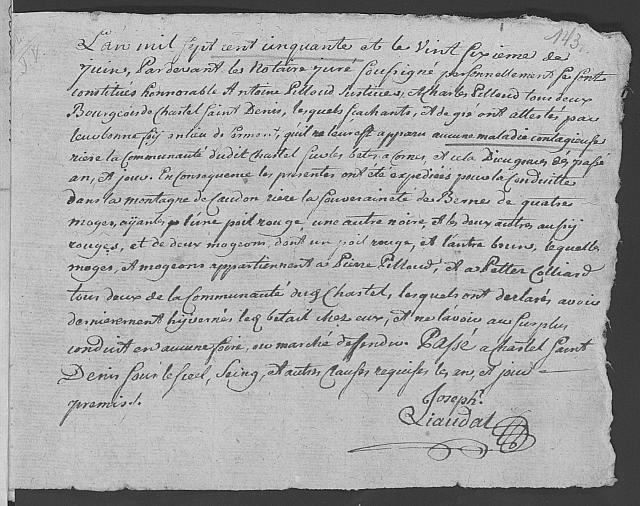 143.
L'an mil sept cent cinquante et le vint sixieme de
Juin, Pardevant le Notaire Juré soussigné personnellement se sont
constitués honnorable Antoine Pilloud Justicier, et Charles Pilloud tous deux
Bourgeois de Chastel Saint Denis, lesquels sachants, et de gré ont attestés par
leur bonne foy en lieu de serment, qu'il ne leur est apparu aucune maladie contagieuse
riere la Communauté dudit Chastel sur les betes a cornes, et cela Dieu graces dès passé
an, et jour. En consequence les presentes ont été expediées pour la conduitte
dans la montagne de Jaudon riere la Souveraineté de Berne de quatre
moges, ayantes l'une poil rouge, une autre noire, et les deux autres aussy
rouges, et de deux mogeons, dont un poil rouge, et l'autre brun, lesquelles
moges, et mogeons appartiennent a Pierre Pilloud, et a Petter Colliard
tous deux de la Communauté dud Chastel, lesquels ont declarés avoir
dernierement hyvernés led betail chez eux, et ne l'avoir au surplus
conduit en aucune foire, ou marché deffendu. Passé a Chastel Saint
Denis sous le scel, seing, et autres clauses requises les an, et jour
premis.
Joseph
Liaudat